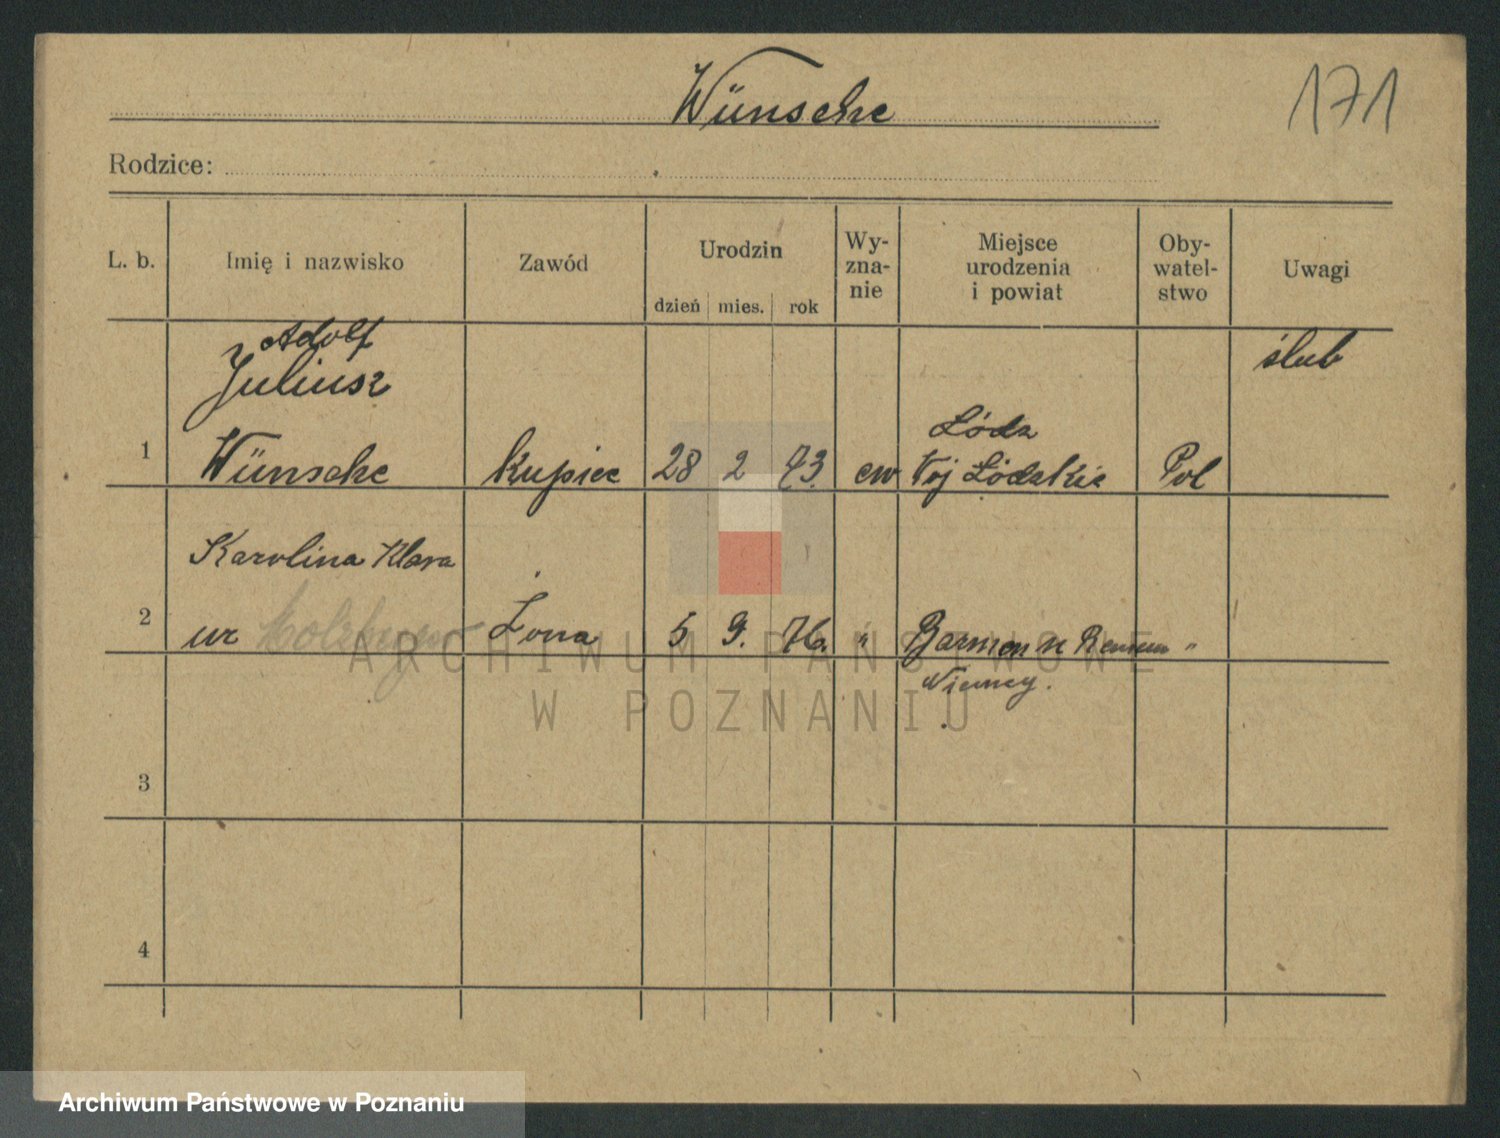 Wünsche
171
Rodzice:
L. b. Imię i nazwisko Zawód Urodzin Wy- Miejsce Oby- Uwagi
zna- urodzenia watel-
nie i powiat stwo
dzień mies. rok
Adolf
Juliusz ślub
Łódz
1 Wünsche Kupiec 28 2 73. ew Woj Łódzkie Pol
Karolina Klara
2 ur Żona 5 9. 76. " Barmen "
Niemcy.
3
4
ARCHIWUM PAŃSTWOWE
W POZNANIU
Archiwum Państwowe w Poznaniu